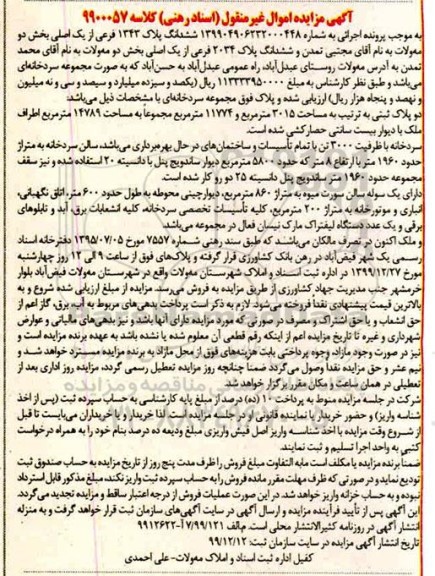 آگهی مزایده اموال غیرمنقول (اسناد رهنی) کلاسه ۹۹۰۰۰۵۷
به موجب پرونده اجرائی به شماره ۱۳۹۹۰۴۹۰۶۲۳۲۰۰۰۴۴۸ ششدانگ پلاک ۱۳۴۳ فرعی از یک اصلی بخش دو
مه‌ولات به نام آقای مجتبی تمدن و ششدانگ پلاک ۲۰۳۴ فرعی از یک اصلی بخش دو مه‌ولات به نام آقای محمد
تمدن به آدرس مه‌ولات روستای عبدل‌آباد، راه عمومی عبدل‌آباد به حسن‌آباد که به صورت مجموعه سردخانه‌ای
می‌باشد و طبق نظر کارشناس به مبلغ ۱۱۳۳۳۹۵۰۰۰۰ ریال (یکصد و سیزده میلیارد و سیصد و سی و نه میلیون
و نهصد و پنجاه هزار ریال) ارزیابی شده و پلاک فوق مجموعه سردخانه‌ای با مشخصات ذیل می‌باشد:
دو پلاک ثبتی به ترتیب به مساحت ۳۰۱۵ مترمربع و ۱۱۷۷۴ مترمربع مجموعاً به مساحت ۱۴۷۸۹ مترمربع اطراف
ملک با دیوار بیست سانتی حصارکشی شده است.
سردخانه با ظرفیت ۳۰۰۰ تن با تمام تأسیسات و ساختمان‌های در حال بهره‌برداری می‌باشد، سالن سردخانه به متراژ
حدود ۱۹۶۰ متر با ارتفاع ۸ متر که حدود ۵۸۰۰ مترمربع دیوار ساندویچ پنل با دانسیته ۲۰ استفاده شده و نیز سقف
مجموعه حدود ۱۹۶۰ متر ساندویچ پنل دانسیته ۲۵ دو رو کار شده است.
دارای یک سوله سالن سورت میوه به متراژ ۸۶۰ مترمربع، دیوارچینی محوطه به طول حدود ۶۰۰ متر، اتاق نگهبانی،
انباری و موتورخانه به متراژ ۲۰۰ مترمربع، کلیه تأسیسات تخصصی سردخانه، کلیه انشعابات برق، آبد و تابلوهای
برقی و یک عدد دستگاه لیفتراک مارک نیسان فعال در مجموعه می‌باشد.
و ملک اکنون در تصرف مالکان می‌باشند که طبق سند رهنی شماره ۷۵۵۷ مورخ ۱۳۹۵/۰۷/۰۵ دفترخانه اسناد
رسمی یک شهر فیض‌آباد در رهن بانک کشاورزی قرار گرفته و پلاک‌های فوق از ساعت ۹ الی ۱۲ روز چهارشنبه
مورخ ۱۳۹۹/۱۲/۲۷ در اداره ثبت اسناد و املاک شهرستان مه‌ولات واقع در شهرستان مه‌ولات فیض‌آباد بلوار
خرمشهر جنب مدیریت جهاد کشاورزی از طریق مزایده به فروش می‌رسد. مزایده از مبلغ ارزیابی شده شروع و به
بالاترین قیمت پیشنهادی نقداً فروخته می‌شود. لازم به ذکر است پرداخت بدهی‌های مربوط به آب، برق، گاز اعم از
حق انشعاب و یا حق اشتراک و مصرف در صورتی که مورد مزایده دارای آنها باشد و نیز بدهی‌های مالیاتی و عوارض
شهرداری و غیره تا تاریخ مزایده اعم از اینکه رقم قطعی آن معلوم شده یا نشده باشد به عهده برنده مزایده است و
نیز در صورت وجود مازاد، وجوه پرداختی بابت هزینه‌های فوق از محل مازاد به برنده مزایده مسترد خواهد شد و
نیم عشر و حق مزایده نقداً وصول می‌گردد ضمناً چنانچه روز مزایده تعطیل رسمی گردد، مزایده روز اداری بعد از
تعطیلی در همان ساعت و مکان مقرر برگزار خواهد شد.
شرکت در جلسه مزایده منوط به پرداخت ۱۰ (ده) درصد از مبلغ پایه کارشناسی به حساب سپرده ثبت (پس از اخذ
شناسه واریز) و حضور خریدار یا نماینده قانونی او در جلسه مزایده است. لذا خریدار و یا خریداران می‌بایست تا قبل
از شروع وقت مزایده با اخذ شناسه واریز اصل فیش واریزی مبلغ ودیعه ده درصد بنام خود را به همراه درخواست
کتبی به واحد اجرا تسلیم و ثبت نمایند.
ضمناً برنده مزایده یا مکلف است مابه التفاوت مبلغ فروش را ظرف مدت پنج روز از تاریخ مزایده به حساب صندوق ثبت
تودیع نماید و در صورتی که ظرف مهلت مقرر مانده فروش را به حساب سپرده ثبت واریز نکند، مبلغ مذکور قابل استرداد
نبوده و به حساب خزانه واریز خواهد شد. در این صورت عملیات فروش از درجه اعتبار ساقط و مزایده تجدید می‌گردد.
این آگهی پس از تأیید فرآینده مزایده و ارسال آگهی در سایت آگهی‌های سازمان ثبت قرار خواهد گرفت و به منزله
انتشار آگهی در روزنامه کثیرالانتشار محلی است. م.الف ۷/۹۹/۱۲۱ آ-۹۹۱۲۶۲۲
تاریخ انتشار آگهی مزایده در سایت سازمان ثبت: ۹۹/۱۲/۱۲
کفیل اداره ثبت اسناد و املاک مه‌ولات- علی احمدی